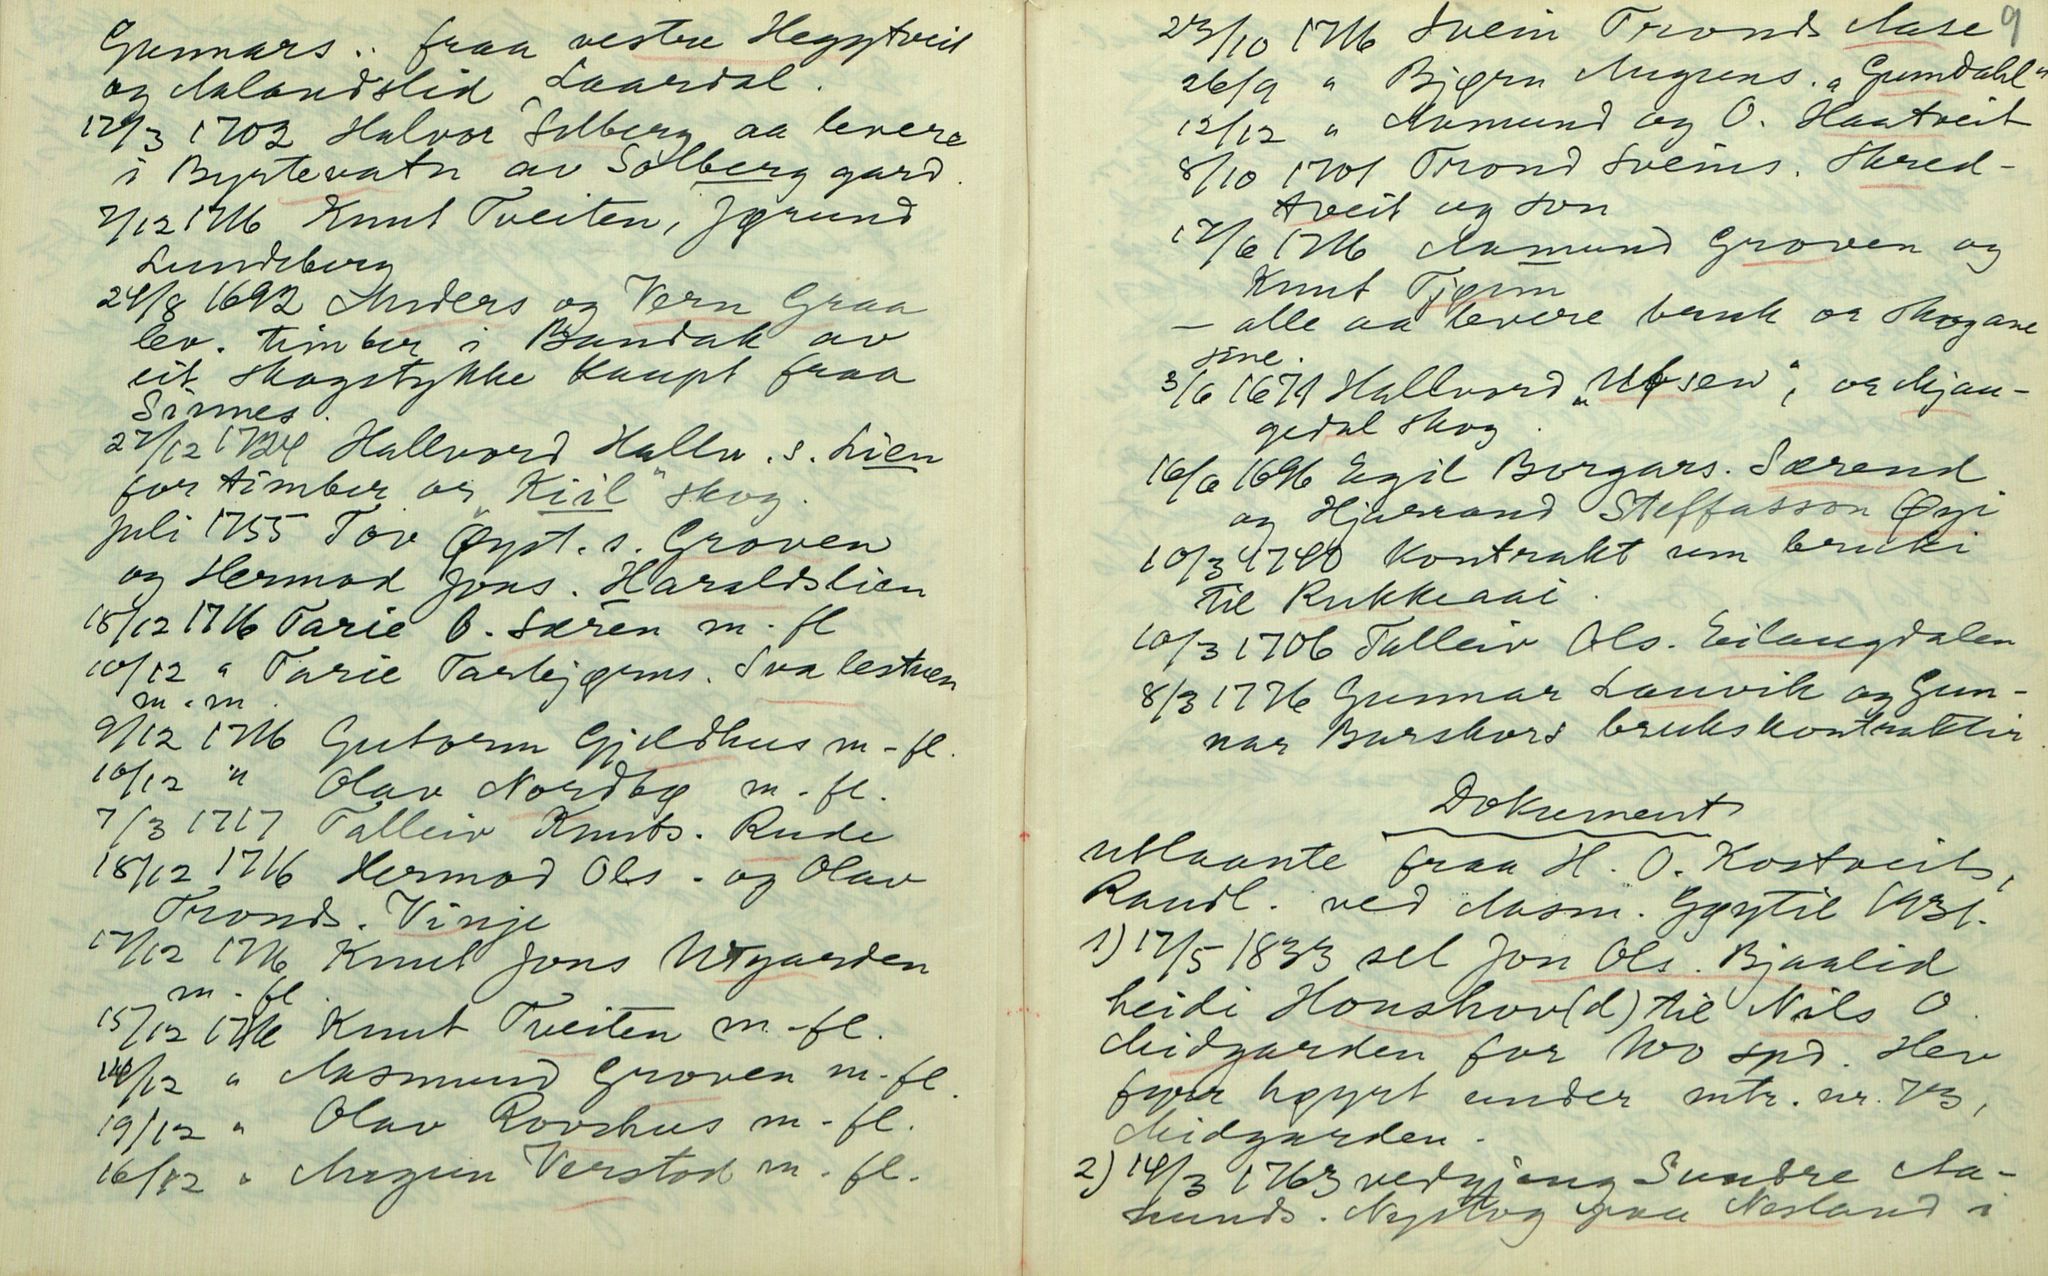 Gunnars.. fraa vestre Heggtveit
og Aalandslid Laardal.
12/3 1702 Halvor Solberg aa levere
i Byrtevatn av Solberg gard.
7/12 1716 Knut Tveiten, Jørund
Lundeberg
24/8 1692 Anders og Vern Graa
lev. timber i Bandak av
eit skogstykke kaupt fraa
Sinnes.
27/12 1724 Hallvord Hallv. s. Lien
for timber or "Kiil" skog.
juli 1755 Tov Øyst. s. Groven
og Hermod Jons. Haraldslien
18/12 1716 Tarie O. Særen m. fl
10/12 " Tarie Torbjørns. Svalestuen
m. m.
9/12 1716 Gutorm Gjeldhus m. fl.
10/12 " Olav Nordbø m. fl.
7/3 1717 Talleiv Knuts. Rudi
18/12 1716 Hermod Ols. og Olav
Tronds. Vinje
17/12 1716 Knut Jons Utgarden
m. fl.
15/12 1716 Knut Tveiten m. fl.
14/12 " Aasmund Groven m. fl.
19/12 " Olav Rovshus m. fl.
16/12 " Augun Verstod m. fl.
9
23/10 1716 Svein Tronds Aase
26/9 " Bjørn Auguns. "Gumdahl"
12/12 " Aamund og O. Haatveit
8/10 1701 Trond Sveins. Skred-
tveit og son
17/6 1716 Aamund Groven og
Knut Tjønn
— alle aa levere bruk or skogane
sine.
3/6 1671 Hallvord "Ubsen", or Mjau-
gedal skog.
16/6 1696 Egil Borgars. Særend
og Hjarrand Steffasson Øyi
10/3 1740 Kontrakt um bruki
til Rukkeaai.
10/3 1706 Talleiv Ols. Eilaugdalen
8/3 1776 Gunnar Lauvik og Gun-
nar Barskors brukskontraktir
Dokument
utlaante fraa H. O. Kostveit,
Raudl. ved Aasm. Gøytil 1931.
1) 17/5 1833 sel Jon Ols. Bjaalid
heidi Honskov(d) til Nils O.
Midgarden for 100 spd. Hev
fyrr høyrt under mtr. nr. 73,
Midgarden.
2) 14/3 1763 vedgjeng Sundre Aa-
munds. Nystog paa Nesland i